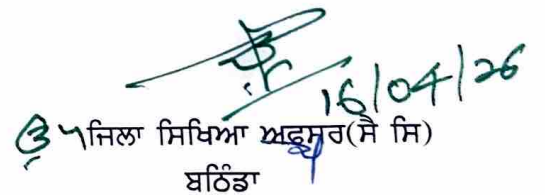 16/04/26
ਉਪ ਜਿਲਾ ਸਿਖਿਆ ਅਫਸਰ(ਸੈ ਸਿ)
ਬਠਿੰਡਾ